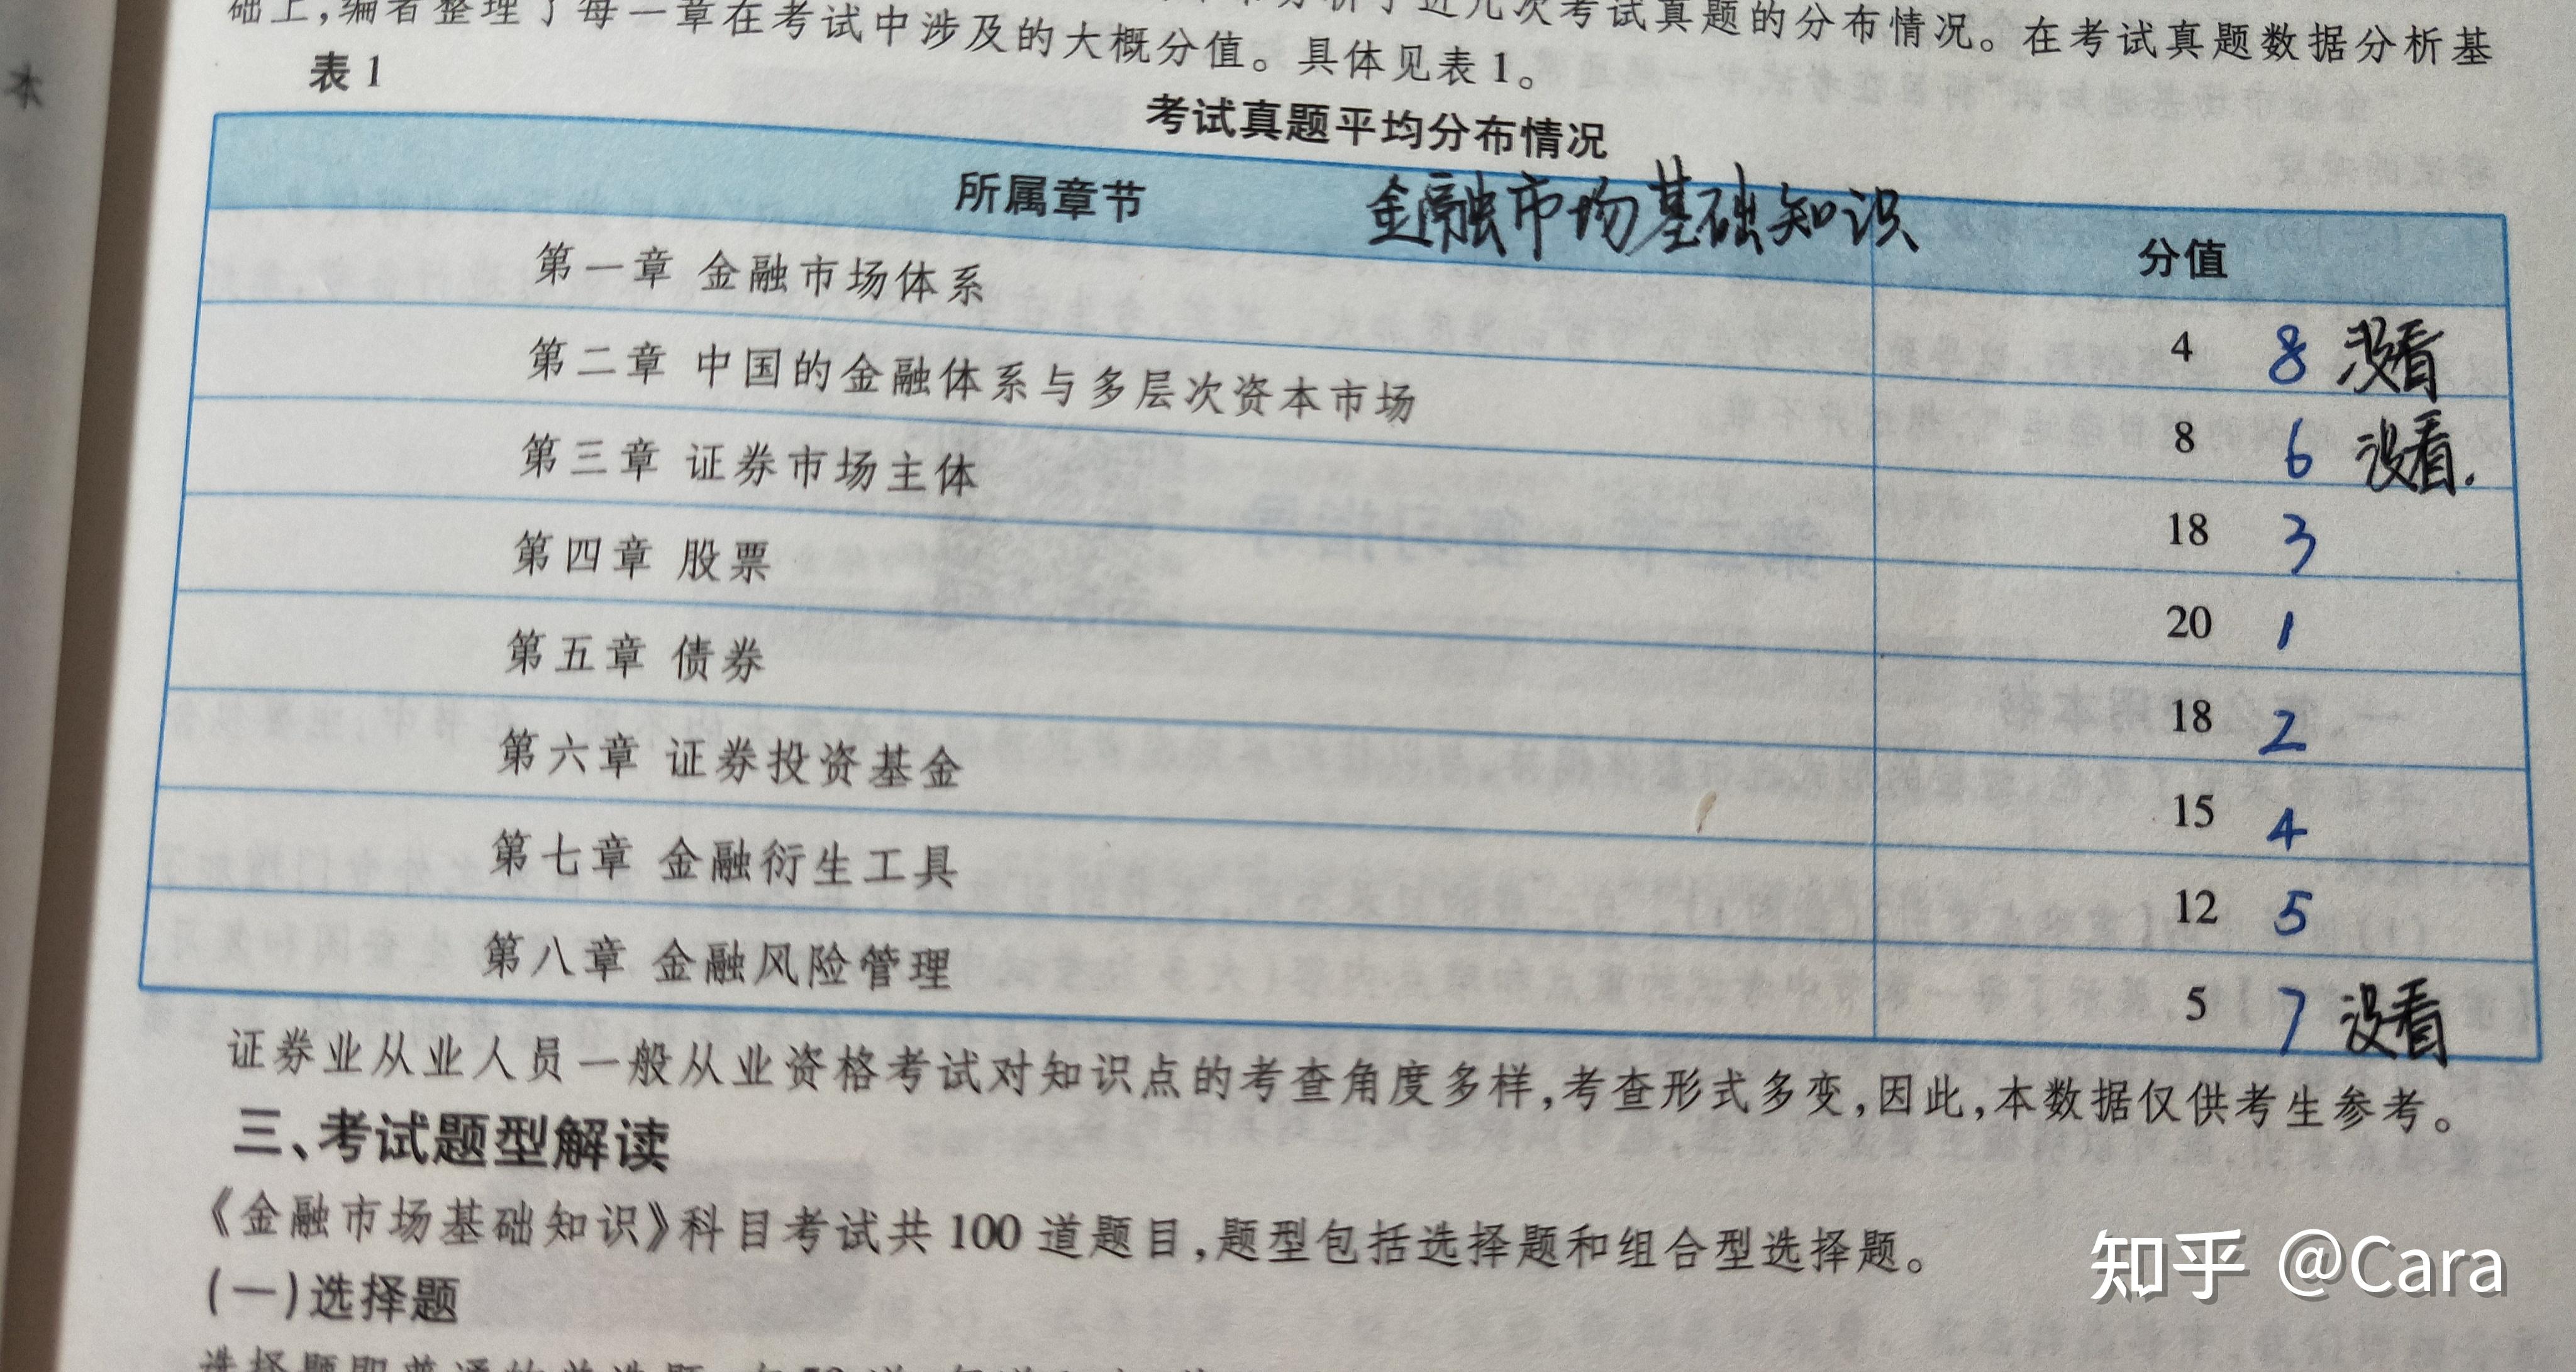 本
础上,编者整理了每一章在考试中涉及的大概分值。具体见表1。
近几次考试真题的分布情况。在考试真题数据分析基
表1
考试真题平均分布情况
所属章节 金融市场基础知识 分值
第一章 金融市场体系 4 8 没看
第二章 中国的金融体系与多层次资本市场 8 6 没看.
第三章 证券市场主体 18 3
第四章 股票 20 1
第五章 债券 18 2
第六章 证券投资基金 15 4
第七章 金融衍生工具 12 5
第八章 金融风险管理 5 7 没看
证券业从业人员一般从业资格考试对知识点的考查角度多样,考查形式多变,因此,本数据仅供考生参考。
三、考试题型解读
《金融市场基础知识》科目考试共100道题目,题型包括选择题和组合型选择题。
(一)选择题
知乎 @Cara